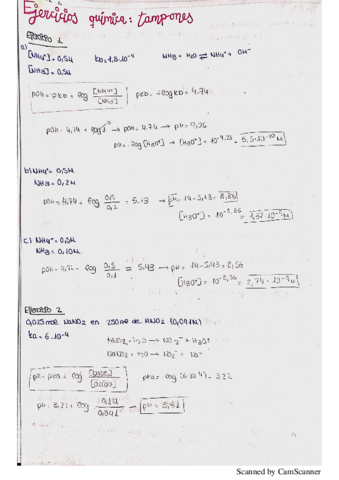 Ejercicios química: tampones
Ejercicio 1
a) [NH4+] = 0,5M
[NH3] = 0,5M
kb = 1,8·10⁻⁵
NH3 + H2O ⇌ NH4+ + OH⁻
pOH = pkb + log [NH4+]/[NH3]
pkb = -log kb = 4.74
pOH = 4,74 + log 1 → pOH = 4,74 → pH = 9,26
pH = -log [H3O+] → [H3O+] = 10^-9,26 = 5,5·10^-10 M
b) NH4+ = 0,5M
NH3 = 0,2M
pOH = 4,74 + log 0,5/0,2 = 5,13 → pH = 14 - 5,13 = 8,86
[H3O+] = 10^-8,86 =
c) NH4+ = 0,5M
NH3 = 0,10M
pOH = 4,74 + log 0,5/0,1 = 5,43 → pH = 14 - 5,43 = 8,56
[H3O+] = 10^-8,56 = 2,74·10^-9 M
Ejercicio 2
0,025 mol NaNO2 en 250 ml de HNO2 (0,04M)
ka = 6·10⁻⁴
HNO2 + H2O → NO2⁻ + H3O+
NaNO2 + H2O → NO2⁻ + Na+
pH = pka + log [base]/[ácido]
pka = -log (6·10⁻⁴) = 3,22
pH = 3,22 + log =
Scanned by CamScanner